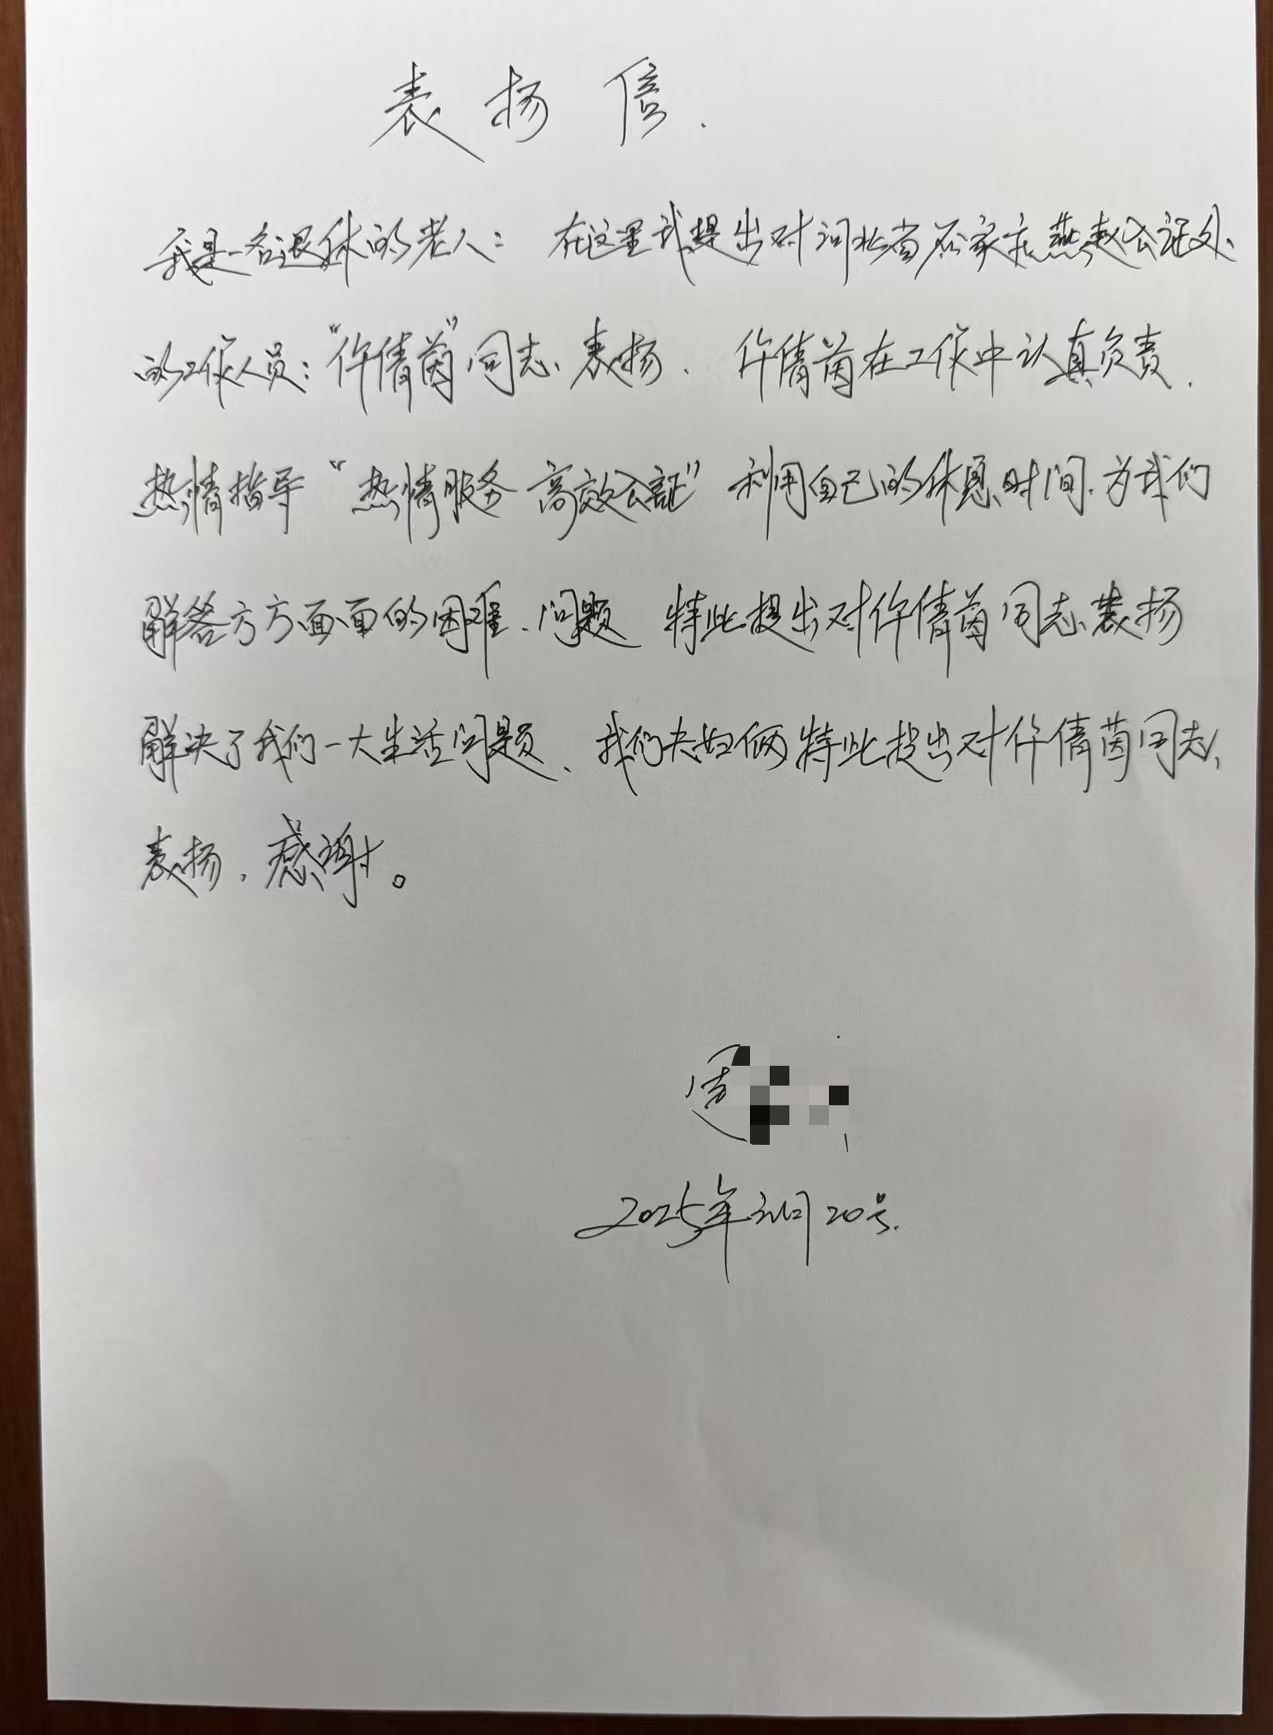 表扬信.
我是一名退休的老人：在这里我提出对河北省石家庄燕赵公证处、
的工作人员：“仵倩茵”同志表扬、仵倩茵在工作中认真负责、
热情指导“热情服务 高效公证”利用自己的休息时间、为我们
解答方方面面的困难、问题 特此提出对仵倩茵同志表扬
解决了我们一大生活问题、我们夫妇俩特此提出对仵倩茵同志、
表扬，感谢。
周
2025年 月20号.